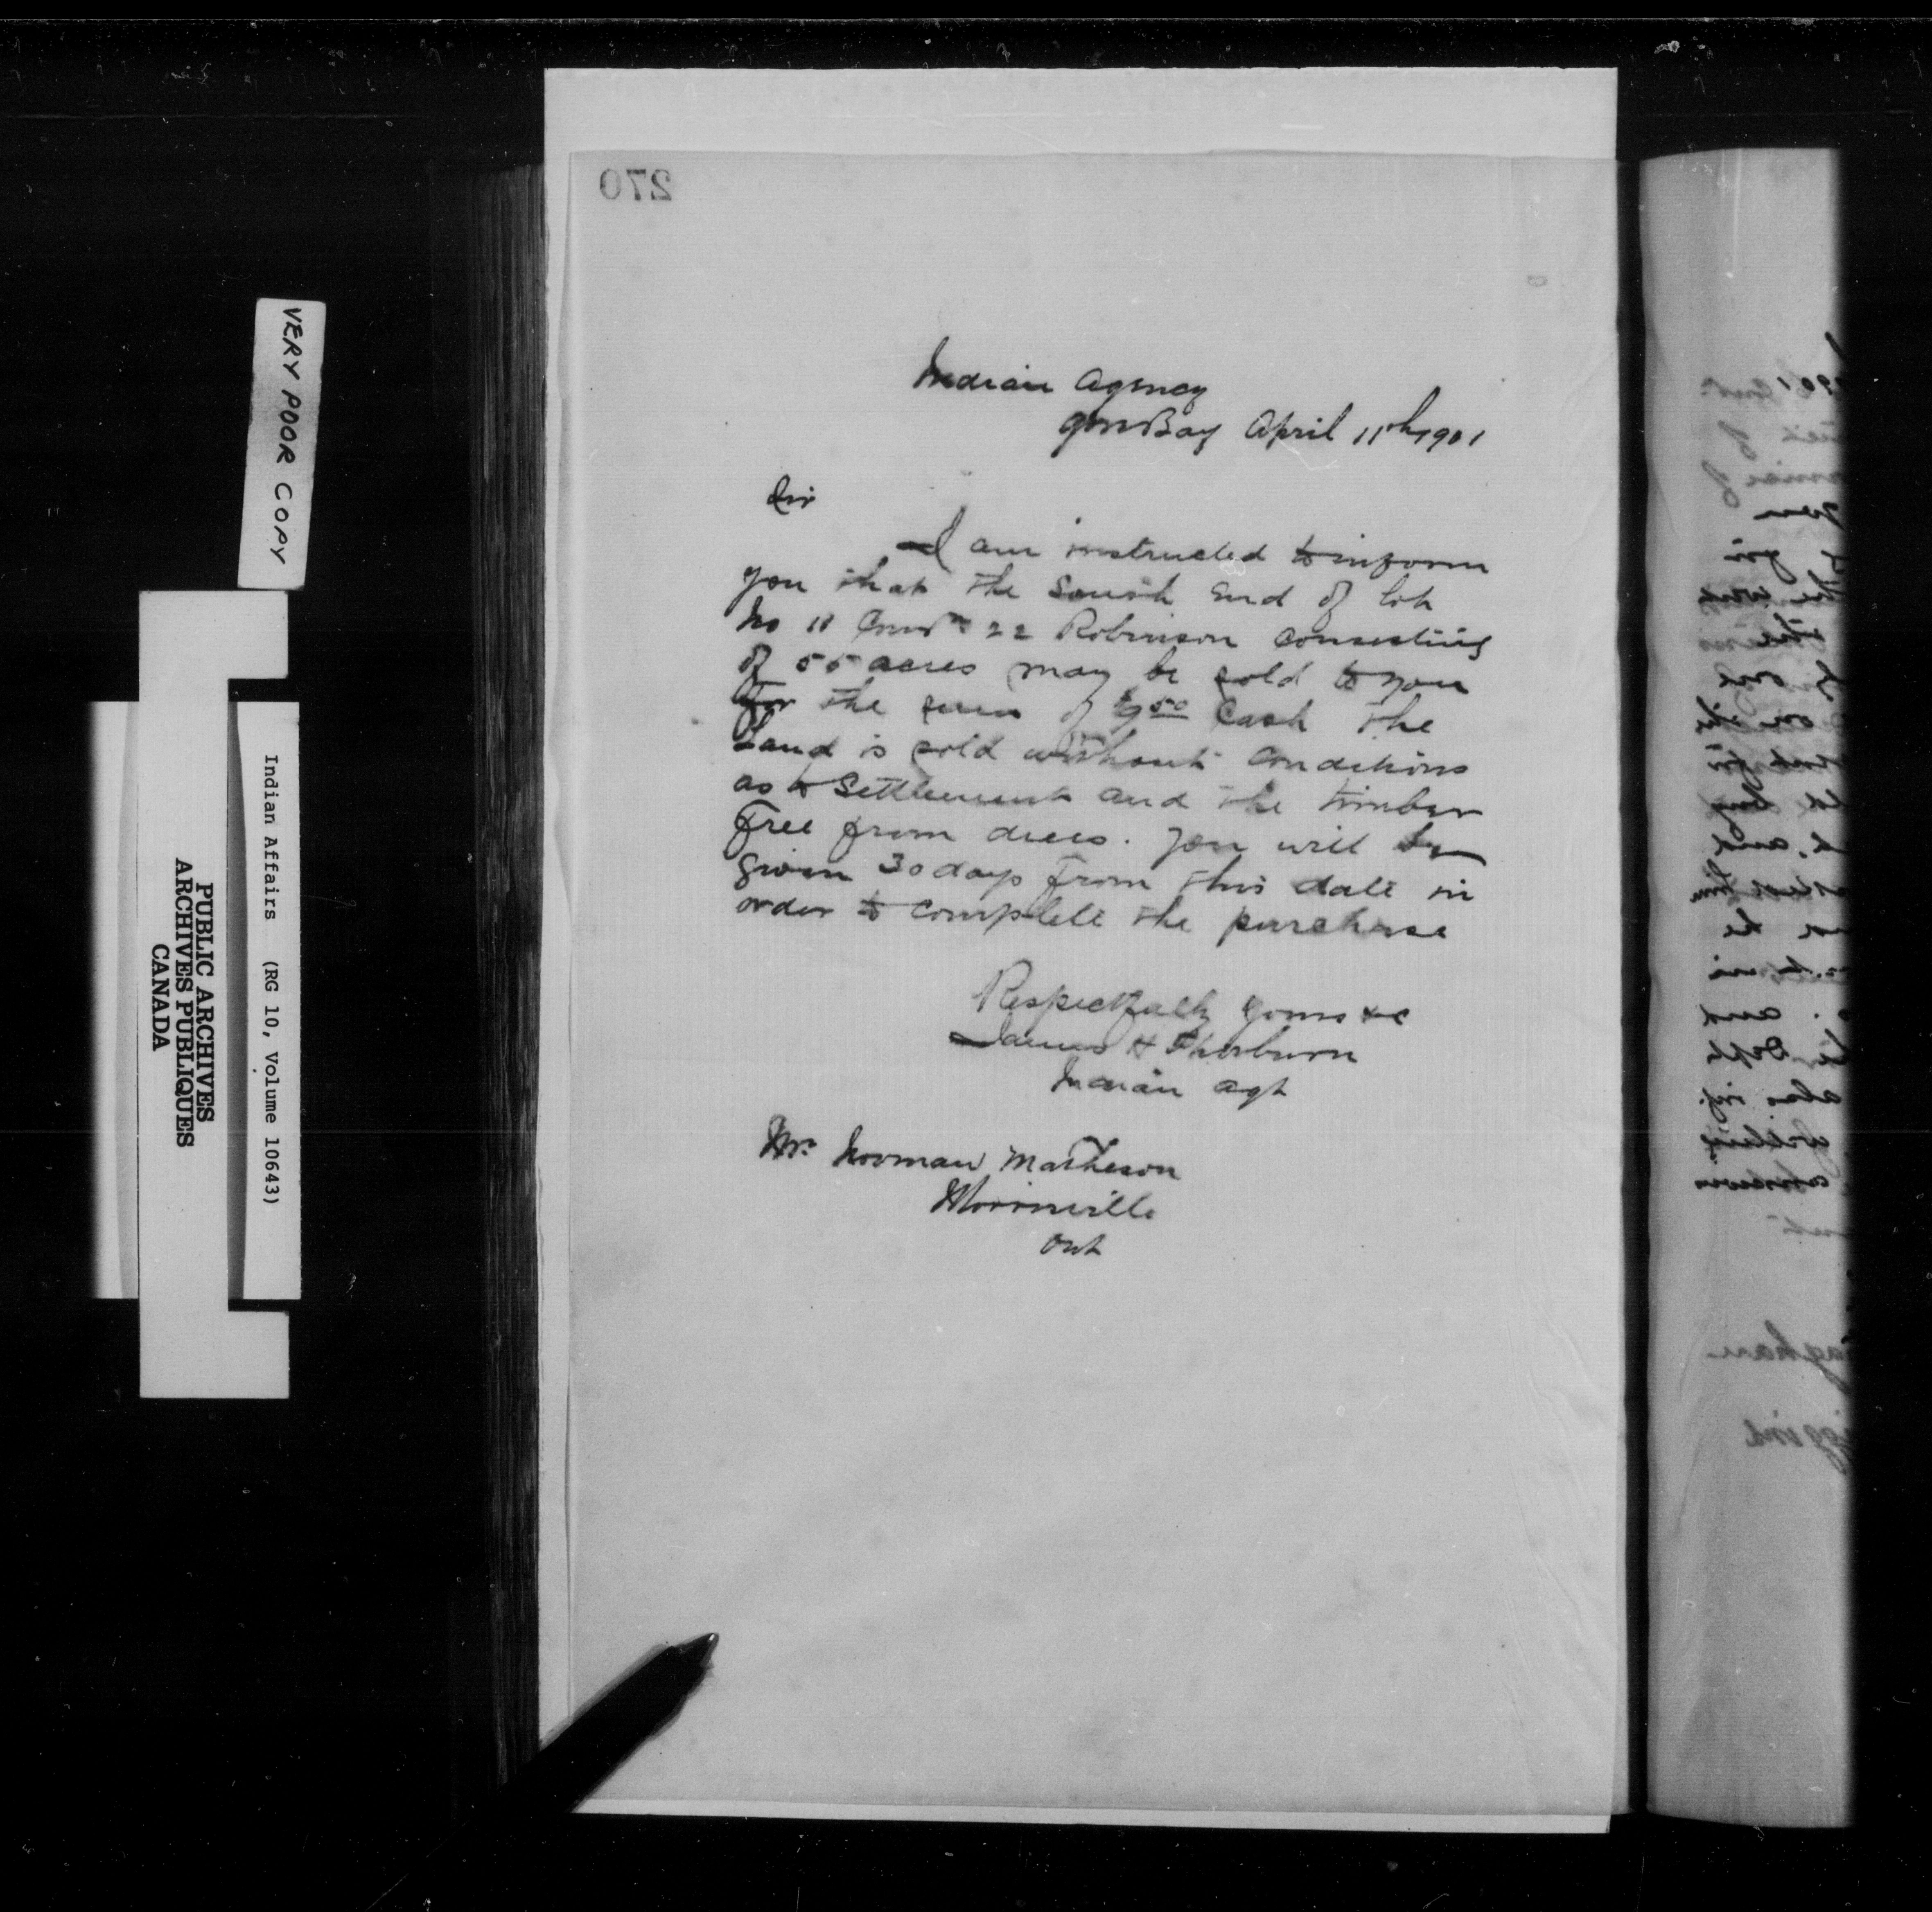 270
Indian Agency
Gore Bay April 11th 1901
Sir
I am instructed to inform
you that the South End of Lot
No 11 Con 22 Robinson Consisting
of 55 acres may be sold to you
for the sum of $9.50 Cash The
Land is sold without Conditions
as to Settlement and the timber
Free from dues. You will be
given 30 days from this date in
order to complete the purchase
Respectfully yours &c
James H Thorburn
Indian Agt
Mr. Norman Matheson
Morinville
Ont
VERY POOR COPY
Indian Affairs (RG 10, Volume 10643)
PUBLIC ARCHIVES
ARCHIVES PUBLIQUES
CANADA